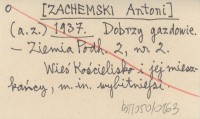 o [ZACHEMSKI Antoni]
(a.z.) 1937. Dobrzy gazdowie.
– Ziemia Podh. 2, nr 2.
Wieś Kościelisko i jej miesz-
kańcy, m.in. wybitniejsi.